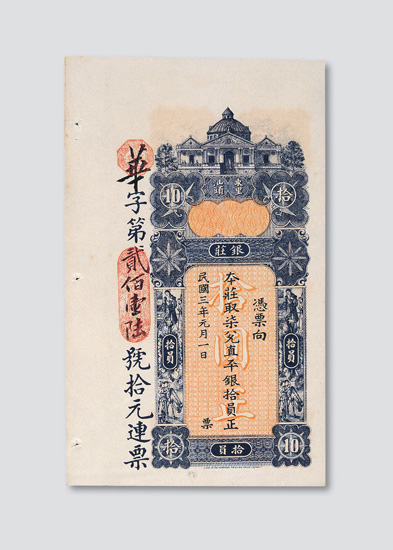 華字第貳佰壹陸號拾元連票
拾
10
東里
汕頭
銀莊
憑票向
本莊取柒兌直平銀拾員正
民國三年元月一日
票
拾圓正
拾員
拾員
10
拾員
拾